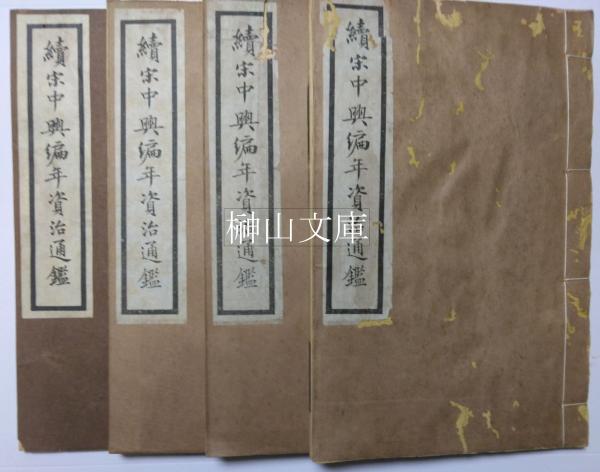 續宋中興編年資治通鑑
續宋中興編年資治通鑑
續宋中興編年資治通鑑
續宋中興編年資治通鑑
榊山文庫